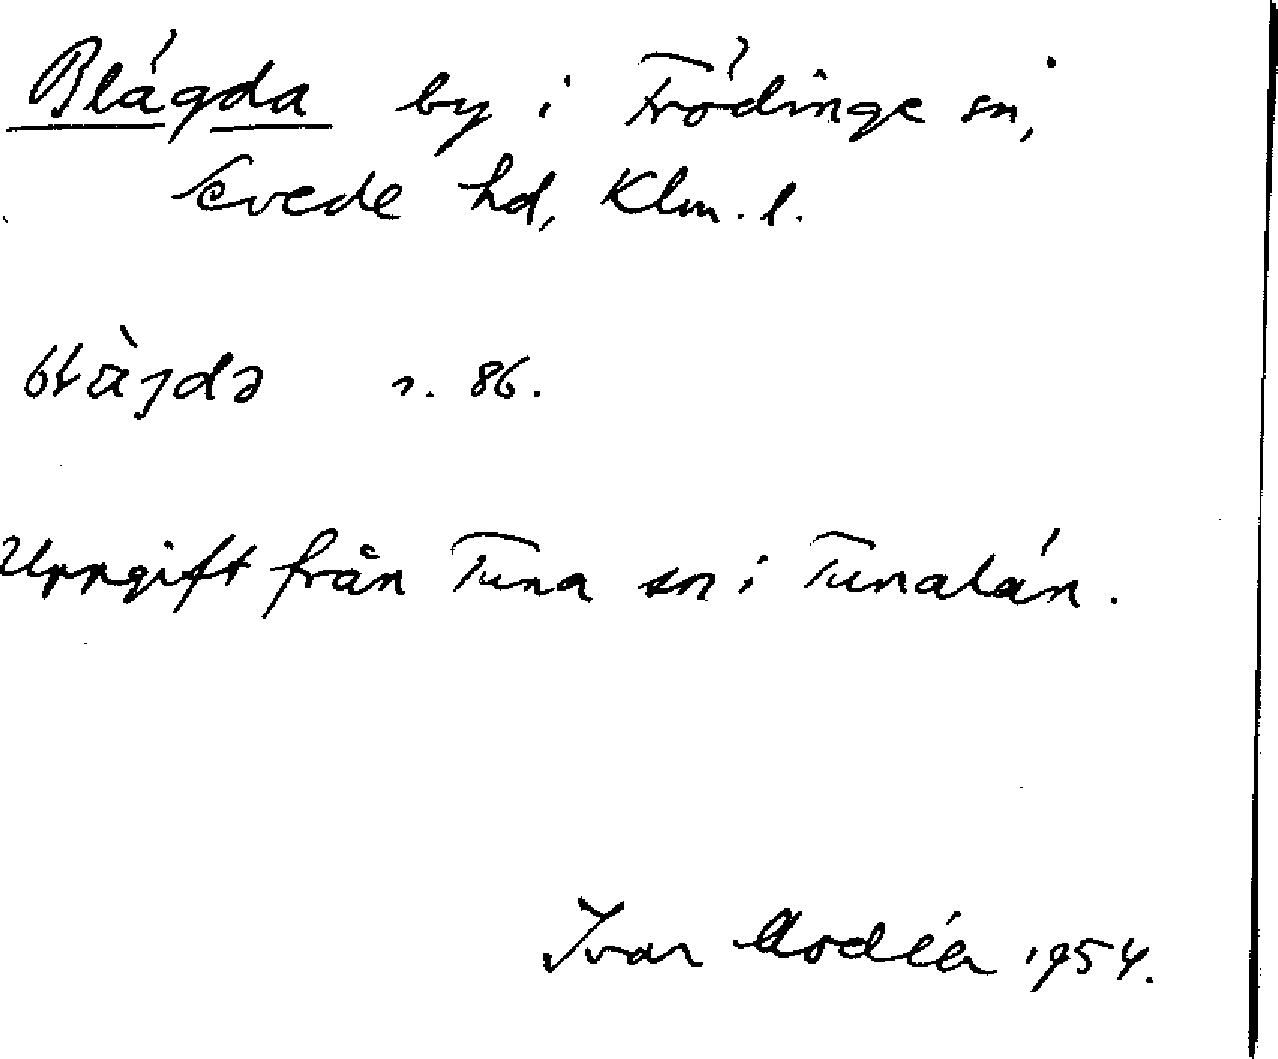 Blägda by i Frödinge sn,
Sevede hd, Klm. l.
s. 86.
Uppgift från Tuna sn i Tunalän.
Ivar Modéer 1954.